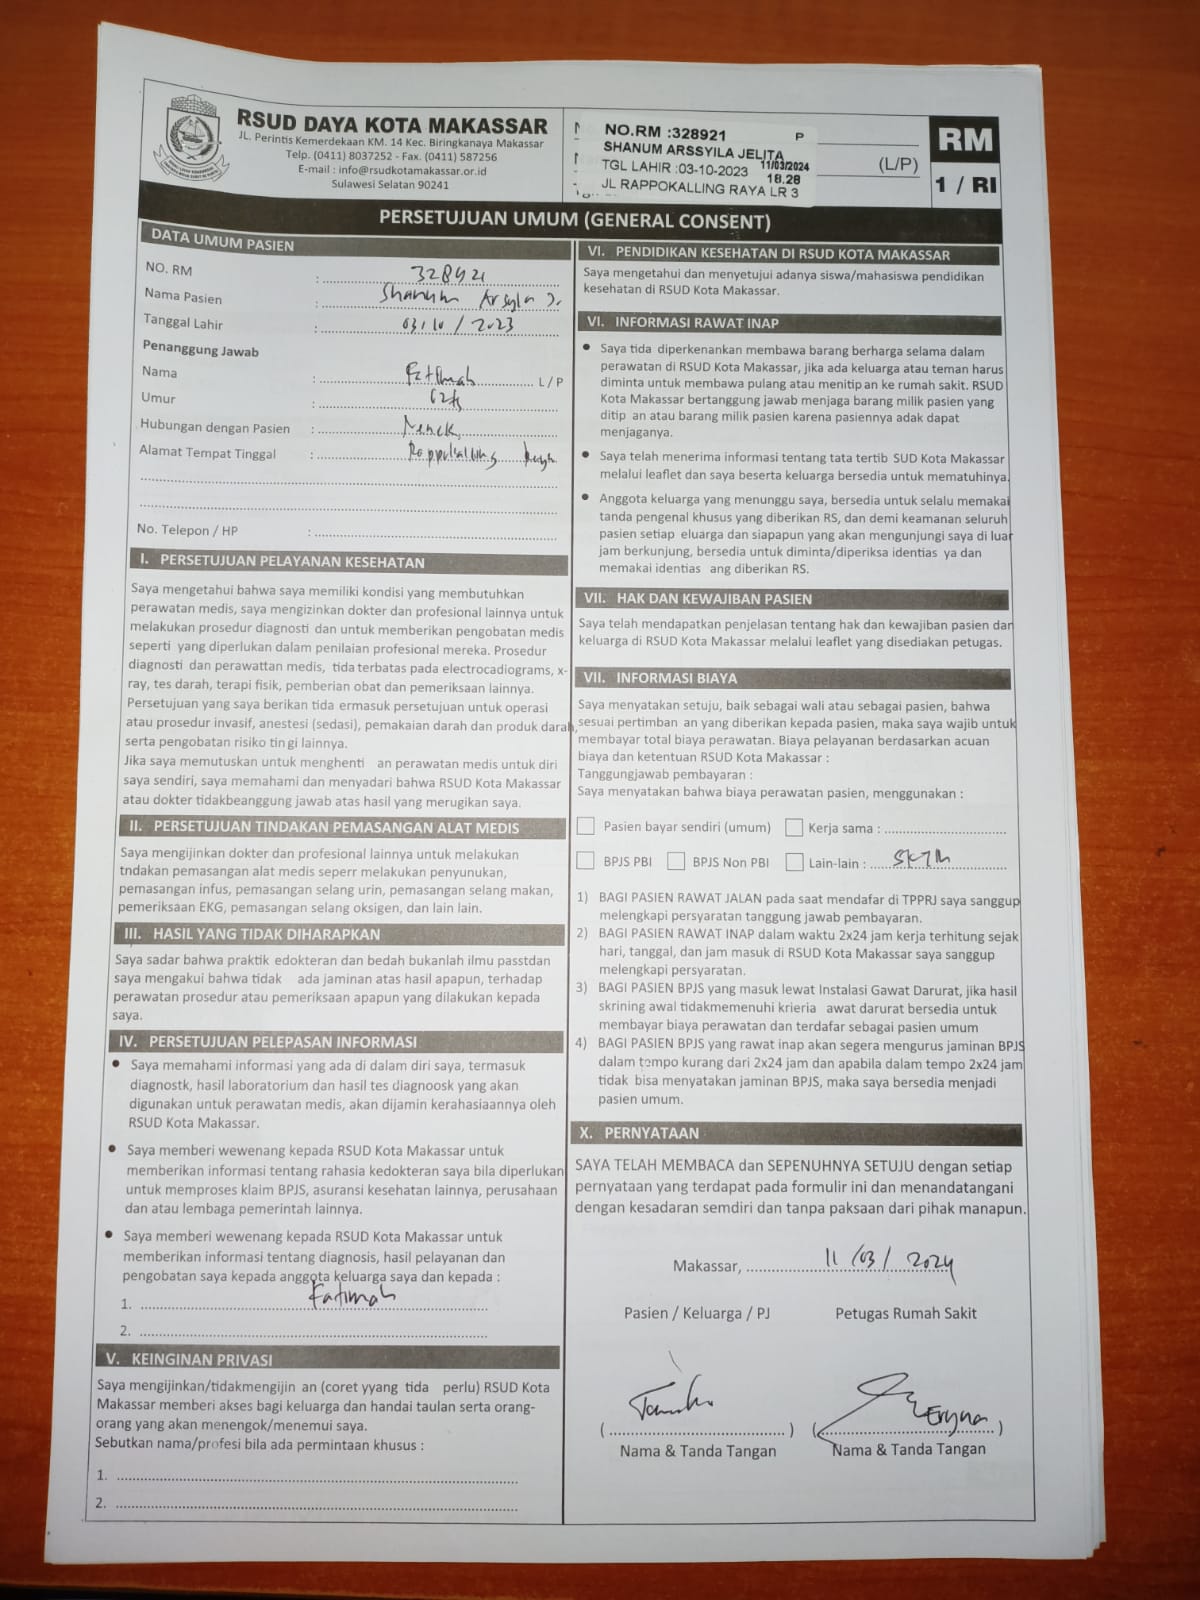 RSUD DAYA KOTA MAKASSAR
JL. Perintis Kemerdekaan KM. 14 Kec. Biringkanaya Makassar
Telp. (0411) 8037252 - Fax. (0411) 587256
E-mail : info@rsudkotamakassar.or.id
Sulawesi Selatan 90241
NO.RM :328921 P
SHANUM ARSSYILA JELITA
TGL LAHIR :03-10-2023 11/03/2024
18.28
JL RAPPOKALLING RAYA LR 3
(L/P)
RM
1 / RI
PERSETUJUAN UMUM (GENERAL CONSENT)
DATA UMUM PASIEN
NO. RM : 328921
Nama Pasien : Shanum Arsyla J.
Tanggal Lahir : 03/10/2023
Penanggung Jawab
Nama : Fatimah L / P
Umur : 62
Hubungan dengan Pasien : Nenek
Alamat Tempat Tinggal :
No. Telepon / HP :
I. PERSETUJUAN PELAYANAN KESEHATAN
Saya mengetahui bahwa saya memiliki kondisi yang membutuhkan
perawatan medis, saya mengizinkan dokter dan profesional lainnya untuk
melakukan prosedur diagnosti dan untuk memberikan pengobatan medis
seperti yang diperlukan dalam penilaian profesional mereka. Prosedur
diagnosti dan perawattan medis, tida terbatas pada electrocadiograms, x-
ray, tes darah, terapi fisik, pemberian obat dan pemeriksaan lainnya.
Persetujuan yang saya berikan tida ermasuk persetujuan untuk operasi
atau prosedur invasif, anestesi (sedasi), pemakaian darah dan produk darah,
serta pengobatan risiko tin gi lainnya.
Jika saya memutuskan untuk menghenti an perawatan medis untuk diri
saya sendiri, saya memahami dan menyadari bahwa RSUD Kota Makassar
atau dokter tidakbeanggung jawab atas hasil yang merugikan saya.
II. PERSETUJUAN TINDAKAN PEMASANGAN ALAT MEDIS
Saya mengijinkan dokter dan profesional lainnya untuk melakukan
tndakan pemasangan alat medis seperr melakukan penyunukan,
pemasangan infus, pemasangan selang urin, pemasangan selang makan,
pemeriksaan EKG, pemasangan selang oksigen, dan lain lain.
III. HASIL YANG TIDAK DIHARAPKAN
Saya sadar bahwa praktik edokteran dan bedah bukanlah ilmu passtdan
saya mengakui bahwa tidak ada jaminan atas hasil apapun, terhadap
perawatan prosedur atau pemeriksaan apapun yang dilakukan kepada
saya.
IV. PERSETUJUAN PELEPASAN INFORMASI
• Saya memahami informasi yang ada di dalam diri saya, termasuk
diagnostk, hasil laboratorium dan hasil tes diagnoosk yang akan
digunakan untuk perawatan medis, akan dijamin kerahasiaannya oleh
RSUD Kota Makassar.
• Saya memberi wewenang kepada RSUD Kota Makassar untuk
memberikan informasi tentang rahasia kedokteran saya bila diperlukan
untuk memproses klaim BPJS, asuransi kesehatan lainnya, perusahaan
dan atau lembaga pemerintah lainnya.
• Saya memberi wewenang kepada RSUD Kota Makassar untuk
memberikan informasi tentang diagnosis, hasil pelayanan dan
pengobatan saya kepada anggota keluarga saya dan kepada :
1. Fatimah
2.
V. KEINGINAN PRIVASI
Saya mengijinkan/tidakmengijin an (coret yyang tida perlu) RSUD Kota
Makassar memberi akses bagi keluarga dan handai taulan serta orang-
orang yang akan menengok/menemui saya.
Sebutkan nama/profesi bila ada permintaan khusus :
1.
2.
VI. PENDIDIKAN KESEHATAN DI RSUD KOTA MAKASSAR
Saya mengetahui dan menyetujui adanya siswa/mahasiswa pendidikan
kesehatan di RSUD Kota Makassar.
VI. INFORMASI RAWAT INAP
• Saya tida diperkenankan membawa barang berharga selama dalam
perawatan di RSUD Kota Makassar, jika ada keluarga atau teman harus
diminta untuk membawa pulang atau menitip an ke rumah sakit. RSUD
Kota Makassar bertanggung jawab menjaga barang milik pasien yang
ditip an atau barang milik pasien karena pasiennya adak dapat
menjaganya.
• Saya telah menerima informasi tentang tata tertib SUD Kota Makassar
melalui leaflet dan saya beserta keluarga bersedia untuk mematuhinya.
• Anggota keluarga yang menunggu saya, bersedia untuk selalu memakai
tanda pengenal khusus yang diberikan RS, dan demi keamanan seluruh
pasien setiap eluarga dan siapapun yang akan mengunjungi saya di luar
jam berkunjung, bersedia untuk diminta/diperiksa identias ya dan
memakai identias ang diberikan RS.
VII. HAK DAN KEWAJIBAN PASIEN
Saya telah mendapatkan penjelasan tentang hak dan kewajiban pasien dan
keluarga di RSUD Kota Makassar melalui leaflet yang disediakan petugas.
VII. INFORMASI BIAYA
Saya menyatakan setuju, baik sebagai wali atau sebagai pasien, bahwa
sesuai pertimban an yang diberikan kepada pasien, maka saya wajib untuk
membayar total biaya perawatan. Biaya pelayanan berdasarkan acuan
biaya dan ketentuan RSUD Kota Makassar :
Tanggungjawab pembayaran :
Saya menyatakan bahwa biaya perawatan pasien, menggunakan :
Pasien bayar sendiri (umum) Kerja sama :
BPJS PBI BPJS Non PBI Lain-lain : SKTM
1) BAGI PASIEN RAWAT JALAN pada saat mendafar di TPPRJ saya sanggup
melengkapi persyaratan tanggung jawab pembayaran.
2) BAGI PASIEN RAWAT INAP dalam waktu 2x24 jam kerja terhitung sejak
hari, tanggal, dan jam masuk di RSUD Kota Makassar saya sanggup
melengkapi persyaratan.
3) BAGI PASIEN BPJS yang masuk lewat Instalasi Gawat Darurat, jika hasil
skrining awal tidakmemenuhi krieria awat darurat bersedia untuk
membayar biaya perawatan dan terdafar sebagai pasien umum
4) BAGI PASIEN BPJS yang rawat inap akan segera mengurus jaminan BPJS
dalam tempo kurang dari 2x24 jam dan apabila dalam tempo 2x24 jam
tidak bisa menyatakan jaminan BPJS, maka saya bersedia menjadi
pasien umum.
X. PERNYATAAN
SAYA TELAH MEMBACA dan SEPENUHNYA SETUJU dengan setiap
pernyataan yang terdapat pada formulir ini dan menandatangani
dengan kesadaran semdiri dan tanpa paksaan dari pihak manapun.
Makassar, 11/03/2024
Pasien / Keluarga / PJ Petugas Rumah Sakit
( ) ( )
Nama & Tanda Tangan Nama & Tanda Tangan